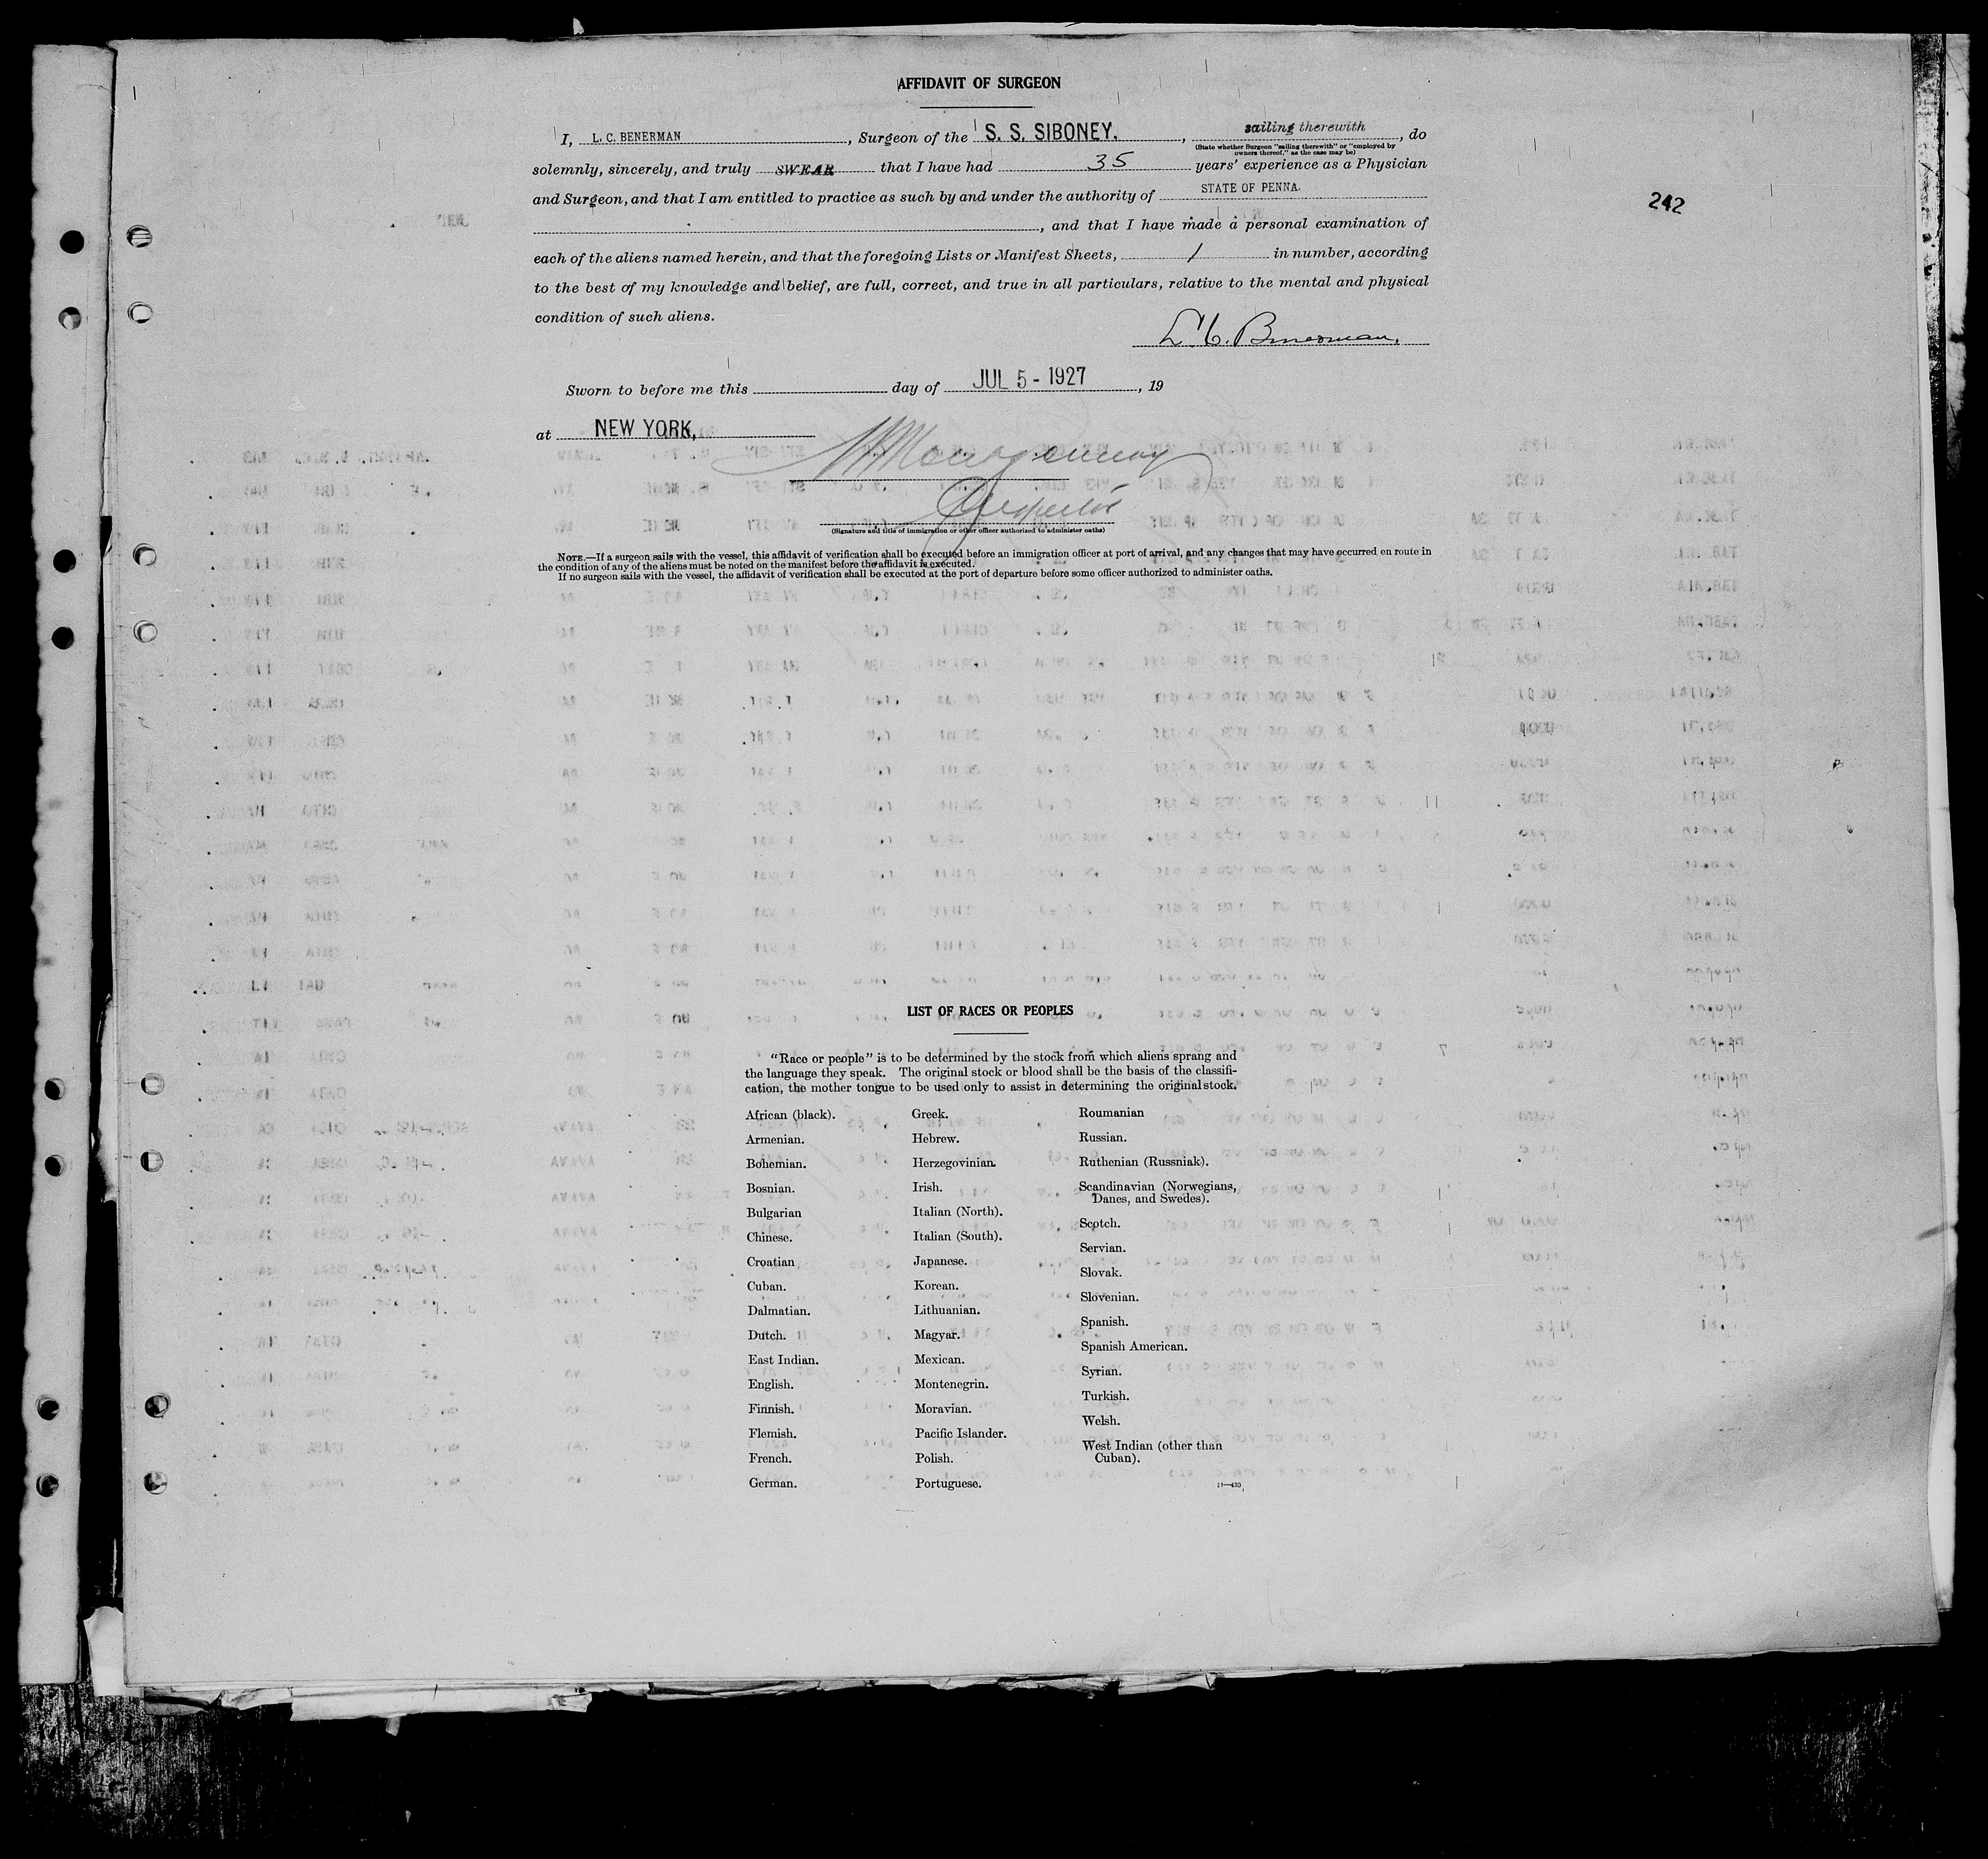 AFFIDAVIT OF SURGEON
I, L. C. BENERMAN, Surgeon of the S. S. SIBONEY., sailing therewith, do
(State whether Surgeon "sailing therewith" or "employed by
owners thereof," as the case may be)
solemnly, sincerely, and truly SWEAR that I have had 35 years' experience as a Physician
and Surgeon, and that I am entitled to practice as such by and under the authority of STATE OF PENNA.
242
, and that I have made a personal examination of
each of the aliens named herein, and that the foregoing Lists or Manifest Sheets, 1 in number, according
to the best of my knowledge and belief, are full, correct, and true in all particulars, relative to the mental and physical
condition of such aliens.
L. C. Benerman.
Sworn to before me this day of JUL 5 - 1927, 19
at NEW YORK,
Montgomery
Inspector
(Signature and title of immigration or other officer authorized to administer oaths)
NOTE.—If a surgeon sails with the vessel, this affidavit of verification shall be executed before an immigration officer at port of arrival, and any changes that may have occurred en route in
the condition of any of the aliens must be noted on the manifest before the affidavit is executed.
If no surgeon sails with the vessel, the affidavit of verification shall be executed at the port of departure before some officer authorized to administer oaths.
LIST OF RACES OR PEOPLES
"Race or people" is to be determined by the stock from which aliens sprang and
the language they speak. The original stock or blood shall be the basis of the classifi-
cation, the mother tongue to be used only to assist in determining the original stock.
African (black).
Armenian.
Bohemian.
Bosnian.
Bulgarian
Chinese.
Croatian
Cuban.
Dalmatian.
Dutch.
East Indian.
English.
Finnish.
Flemish.
French.
German.
Greek.
Hebrew.
Herzegovinian.
Irish.
Italian (North).
Italian (South).
Japanese.
Korean.
Lithuanian.
Magyar.
Mexican.
Montenegrin.
Moravian.
Pacific Islander.
Polish.
Portuguese.
Roumanian
Russian.
Ruthenian (Russniak).
Scandinavian (Norwegians,
Danes, and Swedes).
Scotch.
Servian.
Slovak.
Slovenian.
Spanish.
Spanish American.
Syrian.
Turkish.
Welsh.
West Indian (other than
Cuban).